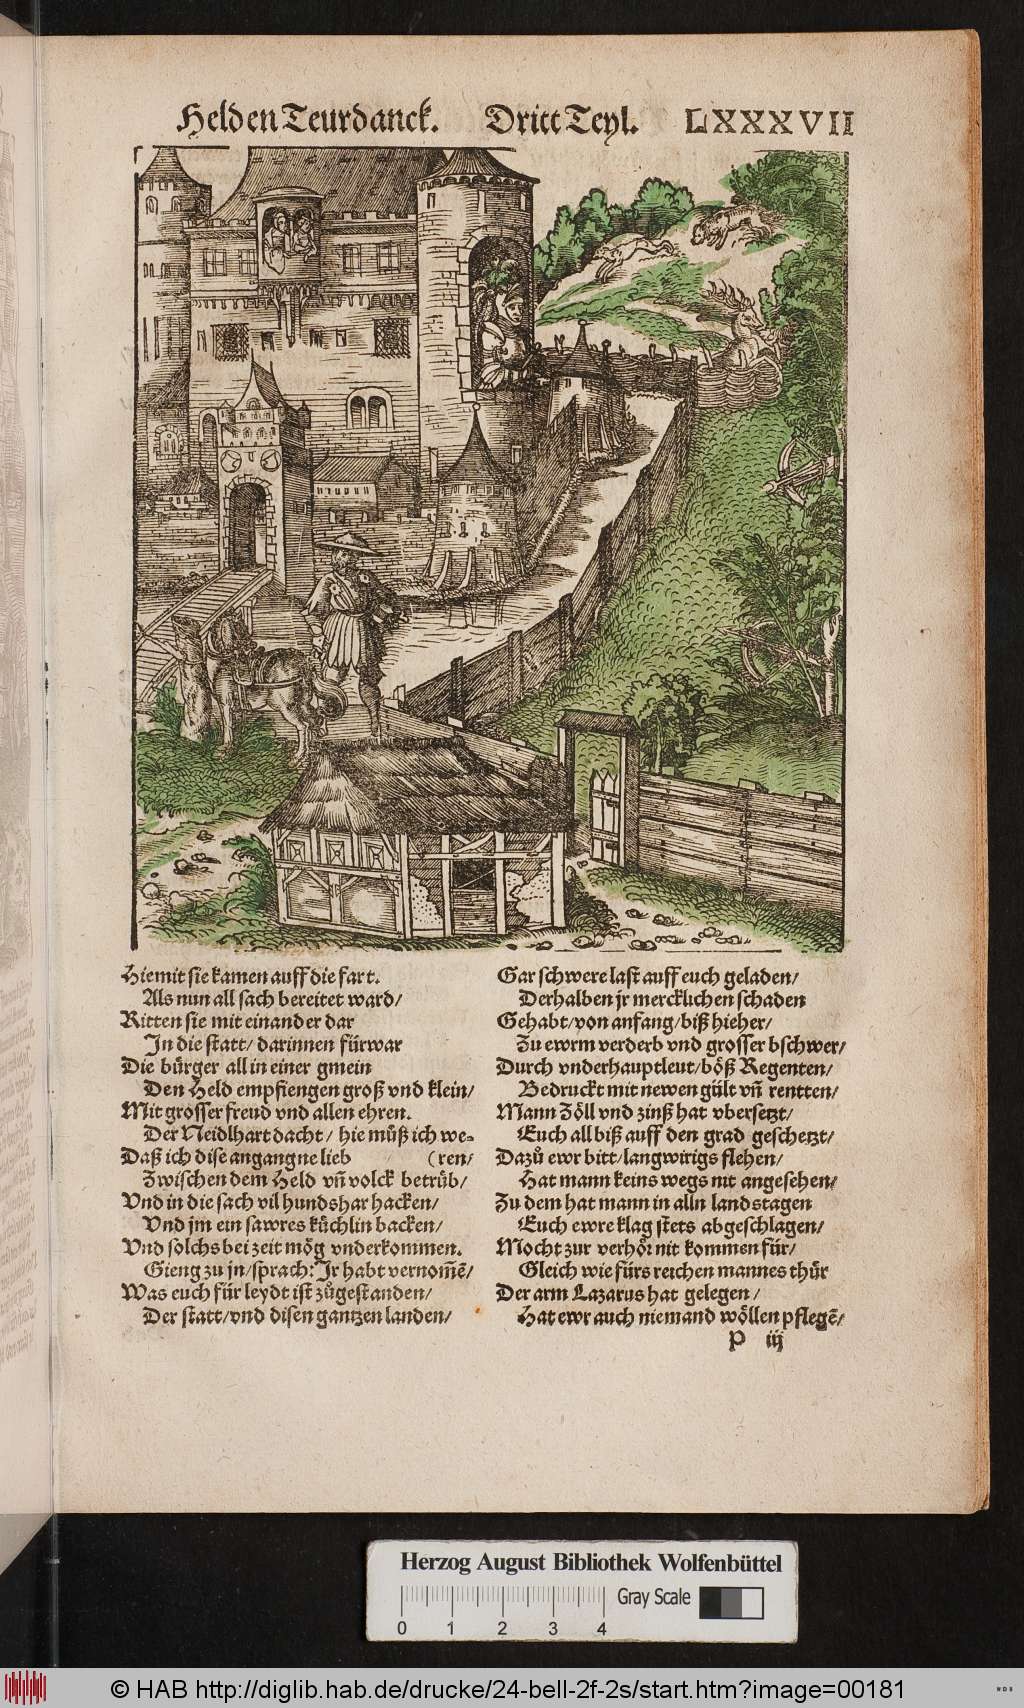 Helden Teurdanck. Dritt Teyl. LXXXVII
Hiemit sie kamen auff die fart.
Als nun all sach bereitet ward/
Ritten sie mit einander dar
In die statt/ darinnen fürwar
Die bürger all in einer gmein
Den Held empfiengen groß vnd klein/
Mit grosser freud vnd allen ehren.
Der Neidlhart dacht/ hie müß ich we-
Daß ich dise angangne lieb (ren/
Zwischen dem Held vñ volck betrüb/
Vnd in die sach vil hundshar hacken/
Vnd jm ein sawres küchlin backen/
Vnd solchs bei zeit mög vnderkommen.
Gieng zu jn/sprach: Ir habt vernom̃ẽ/
Was euch für leydt ist zůgestanden/
Der statt/vnd disen gantzen landen/
Gar schwere last auff euch geladen/
Derhalben jr mercklichen schaden
Gehabt/von anfang/biß hieher/
Zu ewrm verderb vnd grosser bschwer/
Durch vnderhauptleut/böß Regenten/
Bedruckt mit newen gült vñ rentten/
Mann Zöll vnd zinß hat vbersetzt/
Euch all biß auff den grad geschetzt/
Dazů ewr bitt/langwirigs flehen/
Hat mann keins wegs nit angesehen/
Zu dem hat mann in alln landstagen
Euch ewre klag stets abgeschlagen/
Mocht zur verhör nit kommen für/
Gleich wie fürs reichen mannes thür
Der arm Lazarus hat gelegen/
Hat ewr auch niemand wöllen pflegẽ/
P iij
Herzog August Bibliothek Wolfenbüttel
Gray Scale
0 1 2 3 4
© HAB http://diglib.hab.de/drucke/24-bell-2f-2s/start.htm?image=00181